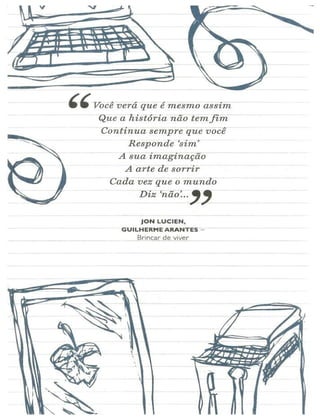 “ Você verá que é mesmo assim
Que a história não tem fim
Continua sempre que você
Responde ‘sim’
A sua imaginação
A arte de sorrir
Cada vez que o mundo
Diz ‘não’... ”
JON LUCIEN,
GUILHERME ARANTES –
Brincar de viver